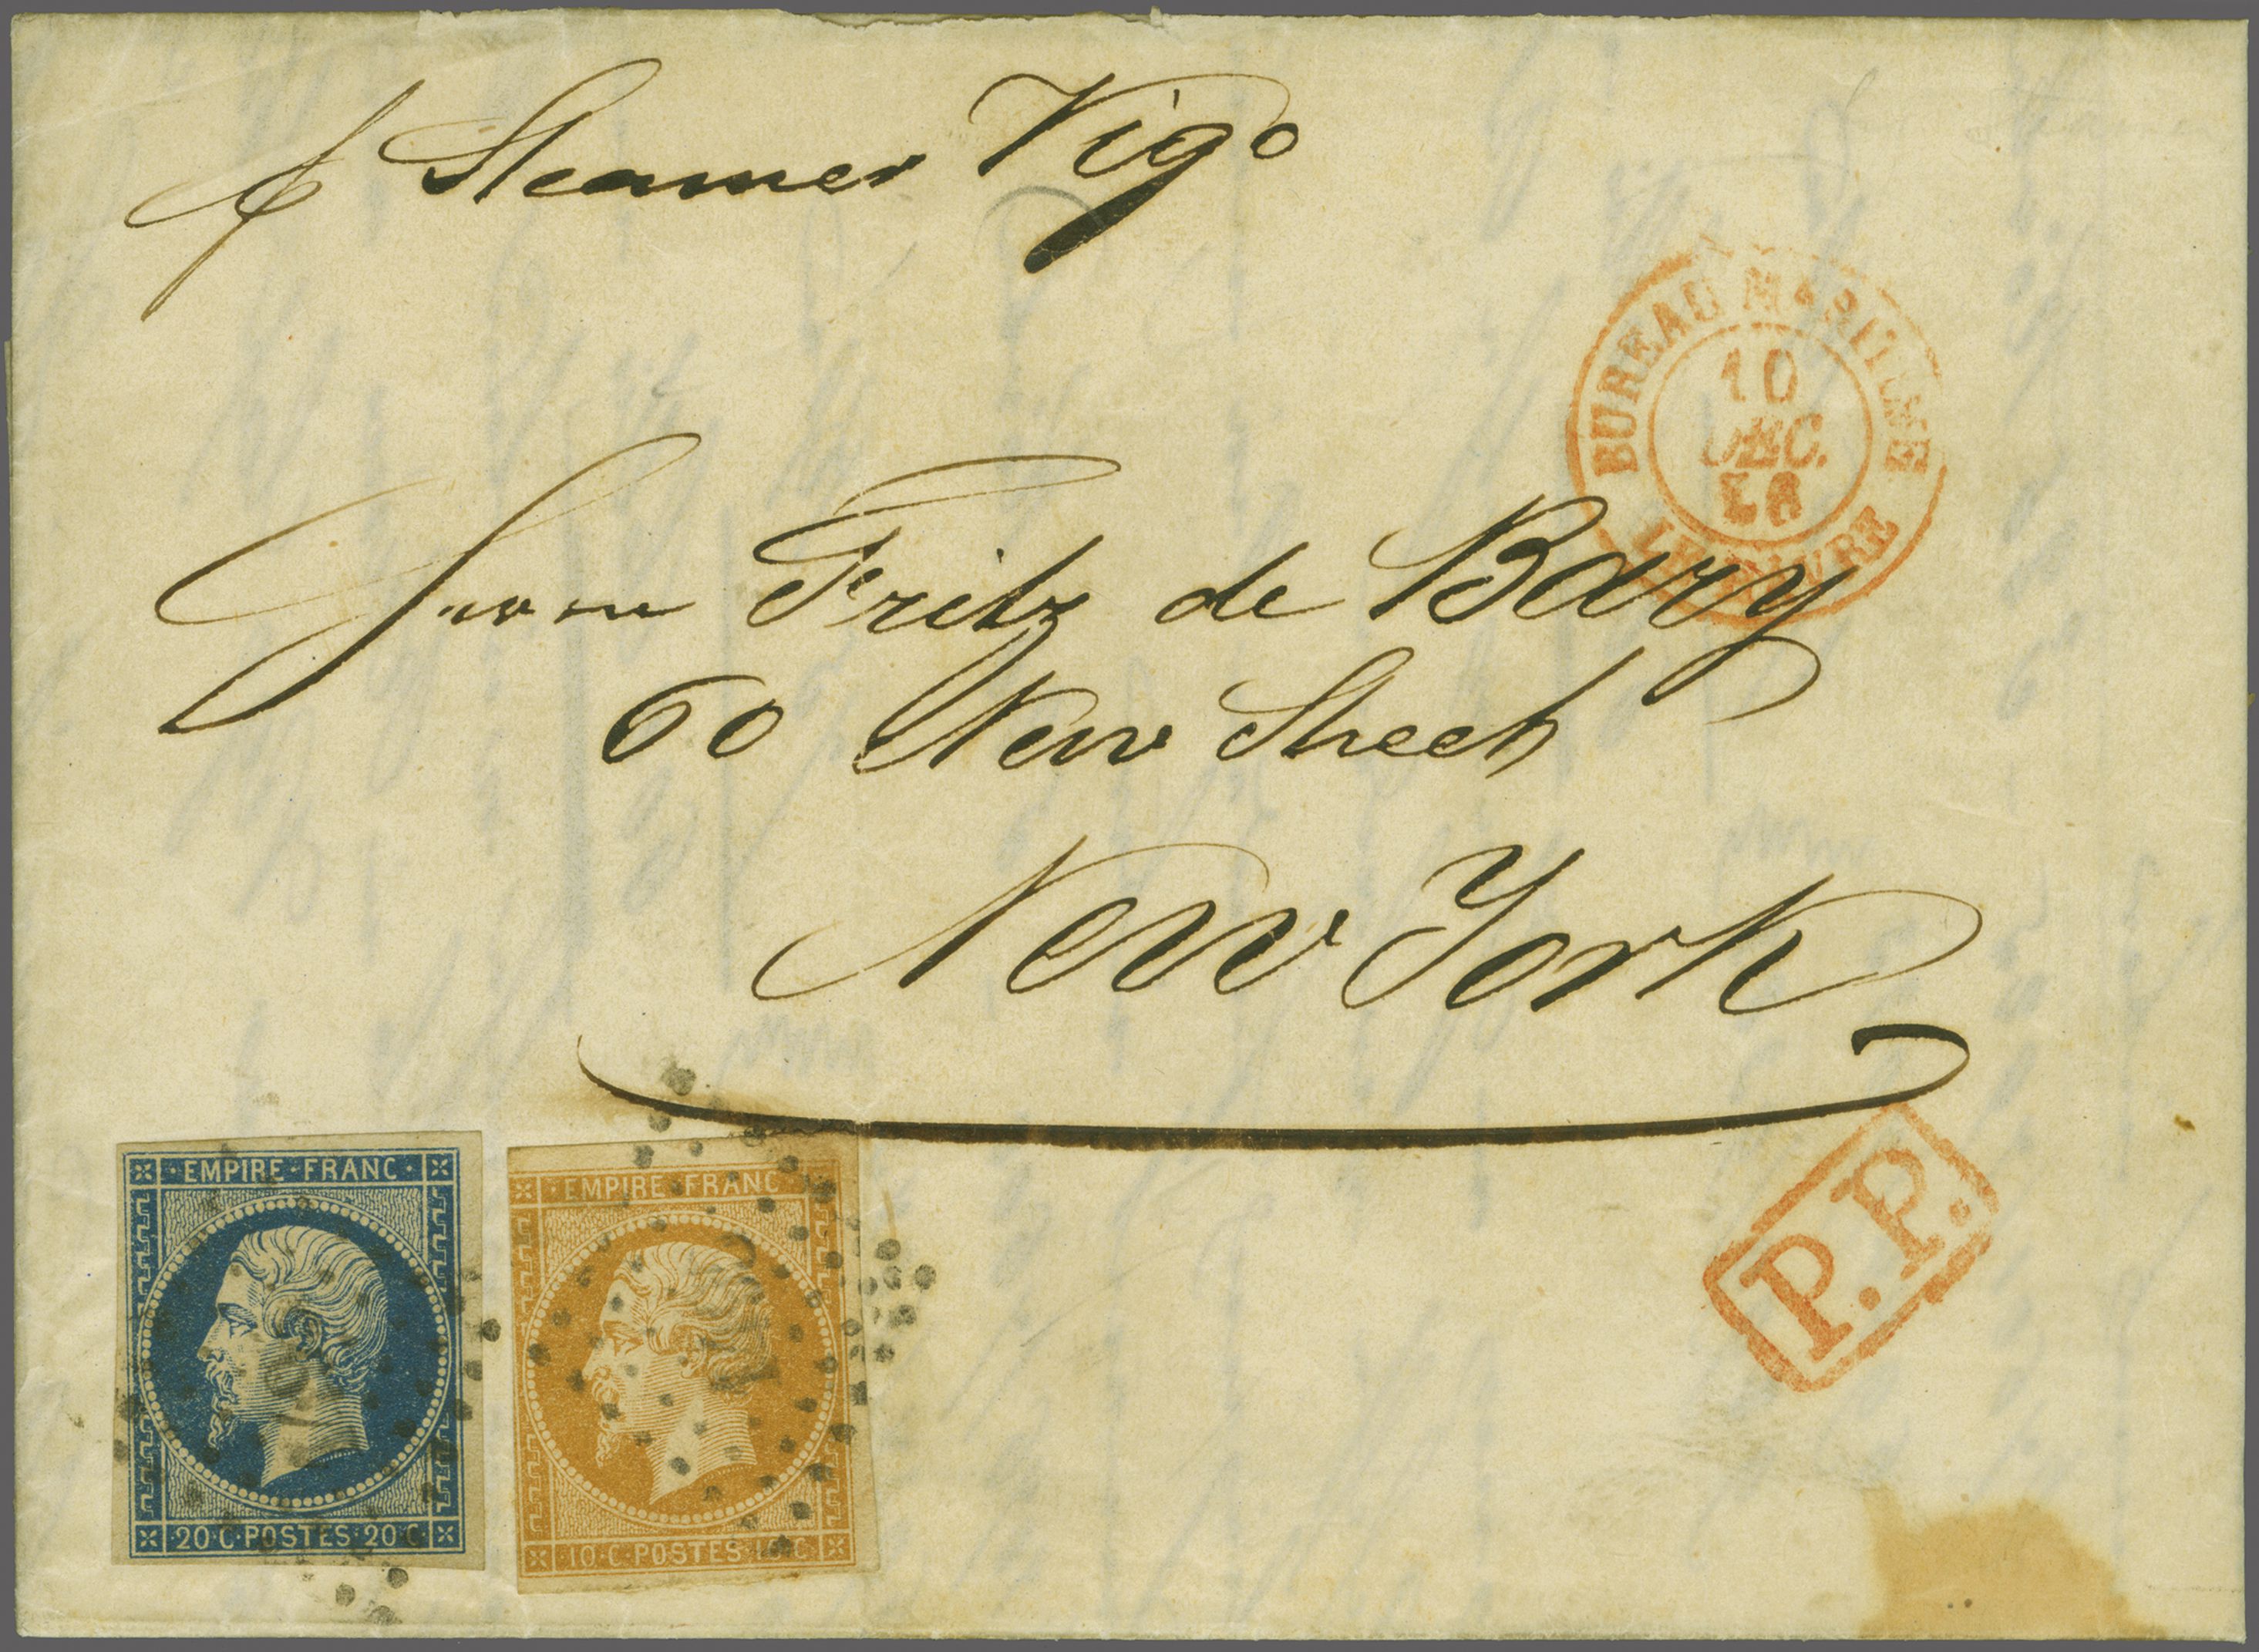 p Steamer Vigo
BUREAU MARITIME
10
DEC.
58
LE HAVRE
Herrn Fritz de Bary
60 New Street
New York
P.P.
EMPIRE FRANC
20 C POSTES 20 C
EMPIRE FRANC
10 C POSTES 10 C